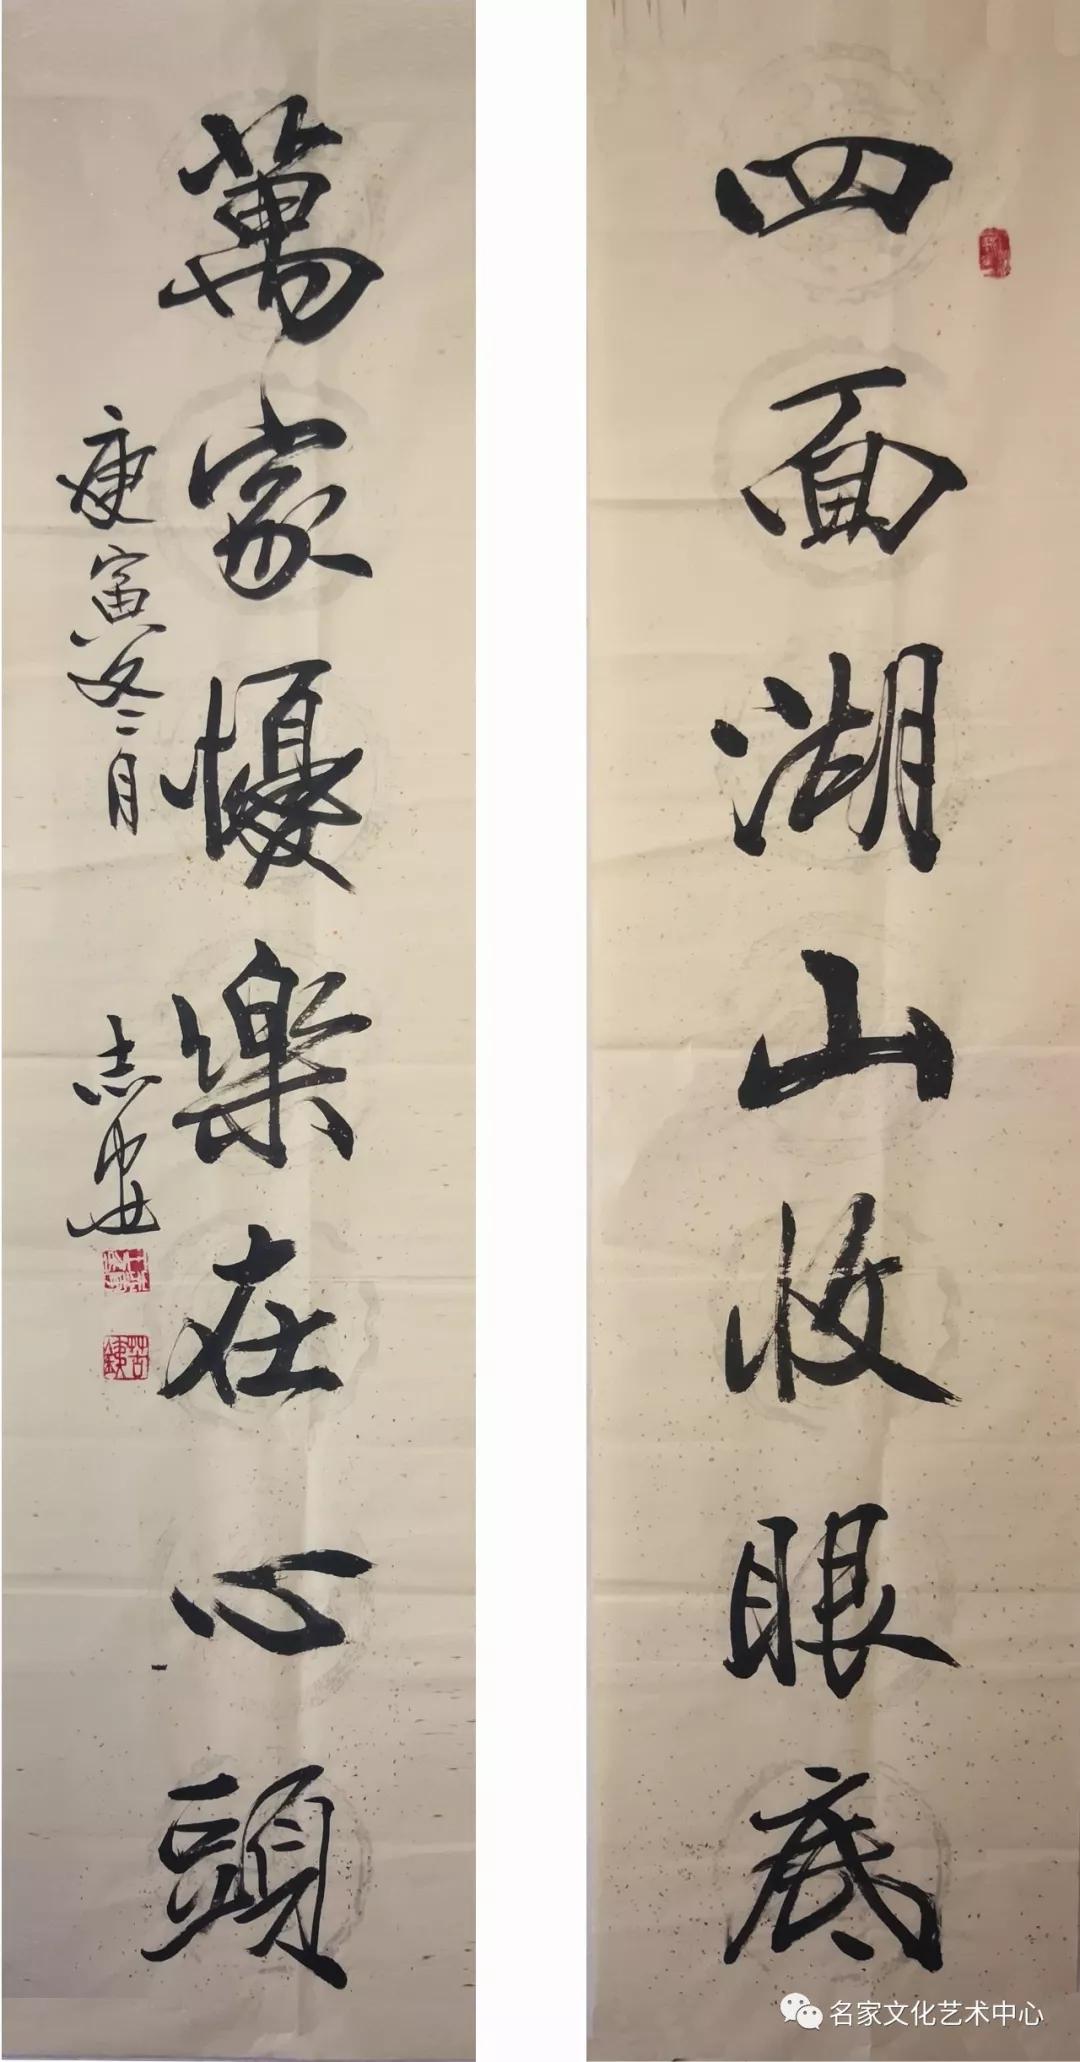 四面湖山收眼底
萬家憂樂在心頭
庚寅冬二月
志安
名家文化艺术中心